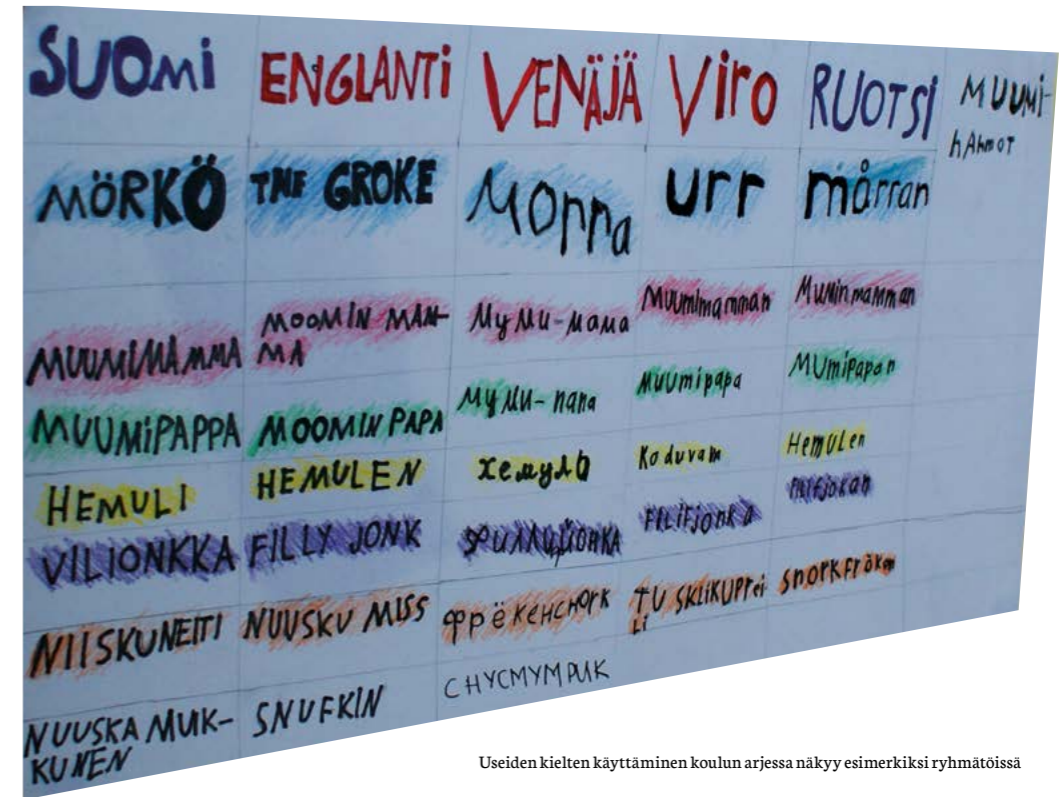 SUOMi ENGLANTI VENÄJÄ Viro RUOTSI MUUMi-
hAhmoT
MÖRKÖ THE GROKE Морра urr mårran
MUUMIMAMMA MOOMIN MAM- Муми-мама Muumimamman Muminmamman
MA
MUUMiPAPPA MOOMIN PAPA Муми-папа Muumipapa MUmipapan
HEMULI HEMULEN хемуль Koduvam Hemulen
VILIONKKA FILLY JONK Филифьонка FILIFjonka Filifjokan
NIISKUNEITI NUUSKU MISS фрёкенснорк TU SKLIKUPrei- snorkfröken
Li
NUUSKA MUIK- SNUFKIN СНУСМУМРИК
KUNEN
Useiden kielten käyttäminen koulun arjessa näkyy esimerkiksi ryhmätöissä